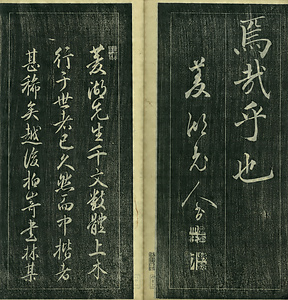 焉哉乎也
菱湖老人書
菱湖先生千文數體上木
行于世者已久然而中楷者
甚稀矣越後柏嵜書林某